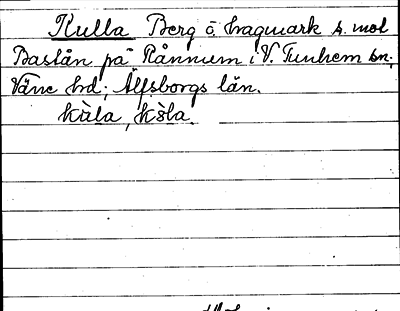 Kulla Berg o. hagmark s. mot
Bastån på Rånnum i V. Tunhem sn.
Väne hd; Älfsborgs län.
kùla,